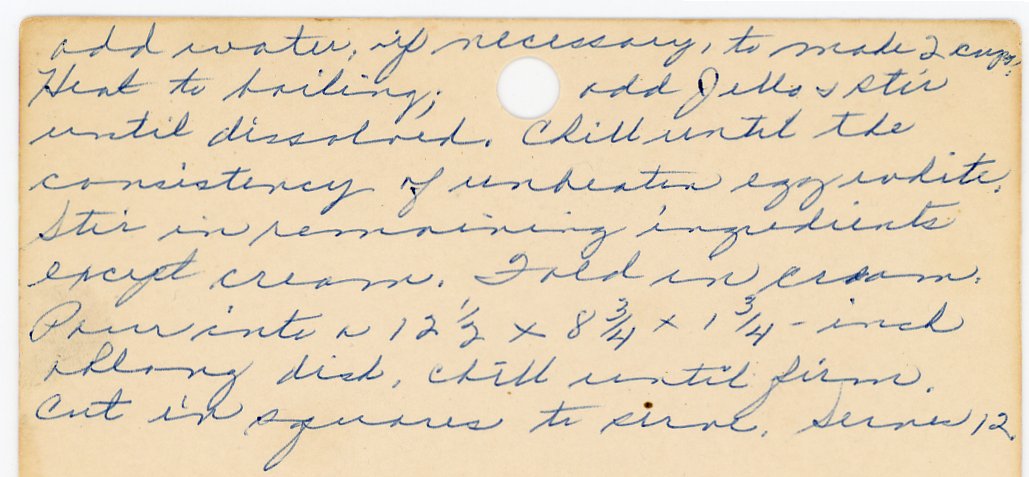 add water, if necessary, to make 2 cups.
Heat to boiling; add Jello & stir
until dissolved. Chill until the
consistency of unbeaten egg white.
Stir in remaining ingredients
except cream. Fold in cream.
Pour into a 12 1/2 x 8 3/4 x 1 3/4 - inch
oblong dish. Chill until firm.
Cut in squares to serve. Serves 12.